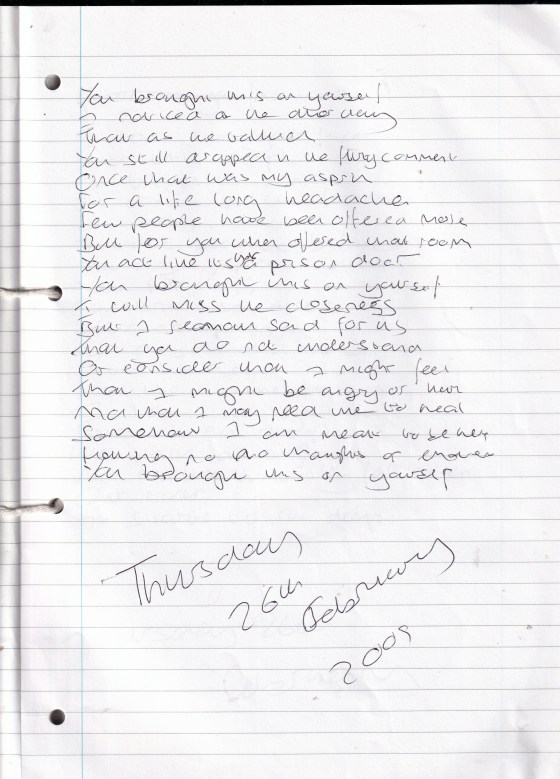 You brought this on yourself
I noticed on the other day
That as we talked
You still dropped in the flirty comment
Once that was my aspirin
For a life long headache
Few people have been offered more
But for you when offered that room
You act like its a prison door
You brought this on yourself
I will miss the closeness
But I seamout sad for us
That you do not understand
Or consider that I might feel
That I might be angry or hurt
And that I may need time to heal
Somehow I am meant to be here
Having no thoughts or
You brought this on yourself
Thursday
26th
February
2009